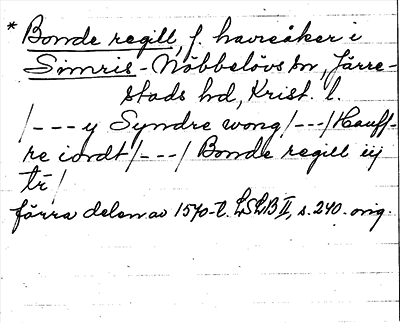 * Bonde regill, f. havreåker i
Simris-Nöbbelövs sn, Järre-
stads hd, Krist. l.
/---y Syndre wong/---/Hauff-
re iordt/---/Bonde regill iij
tr/
förra delen av 1570-t. LSLB II, s. 240. orig.